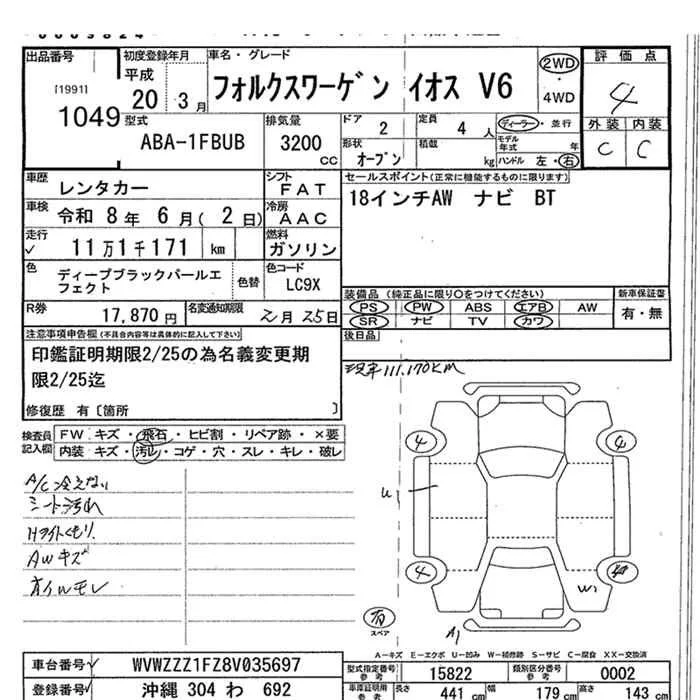 出品番号
[1991]
1049
初度登録年月
平成
20年 3月
車名・グレード
フォルクスワーゲン イオス V6
2WD
・
4WD
評価点
4
外装 内装
C C
型式
ABA-1FBUB
排気量
3200
cc
ドア
2
定員
4 人
形状
オープン
積載
kg
ディーラー・並行
モデル年式 年
ハンドル 左・右
車歴
レンタカー
シフト
FAT
車検
令和 8年 6月( 2日)
冷房
AAC
走行
✓ 11万1千171 km
燃料
ガソリン
色
ディープブラックパールエフェクト
色替
色コード
LC9X
R券
17,870円
名変通知期限
2月25日
セールスポイント(正常に機能するものに限ります)
18インチAW ナビ BT
装備品 (純正品に限り○をつけてください)
PS PW ABS エアB AW
SR ナビ TV カワ
新車保証書
有・無
後日品
注意事項申告欄(不具合内容等は具体的に記入して下さい)
印鑑証明期限2/25の為名義変更期
限2/25迄
修復歴 有〔箇所 〕
現車111,170KM
検査員
記入欄
FW キズ・飛石・ヒビ割・リペア跡・×要
内装 キズ・汚レ・コゲ・穴・スレ・キレ・破レ
A/C冷えない
シート汚れ
Hライトくもり.
AWキズ
オイルモレ
4
4
U1
4
4
W1
有
スペア
A1
A－キズ E－エクボ U－凹み W－補修跡 S－サビ C－腐食 XX－交換済
車台番号✓
WVWZZZ1FZ8V035697
登録番号✓
沖縄 304 わ 692
型式指定番号
参考
15822
類別区分番号
参考
0002
車庫証明用
参考
長さ
441 cm
幅
179 cm
高さ
143 cm